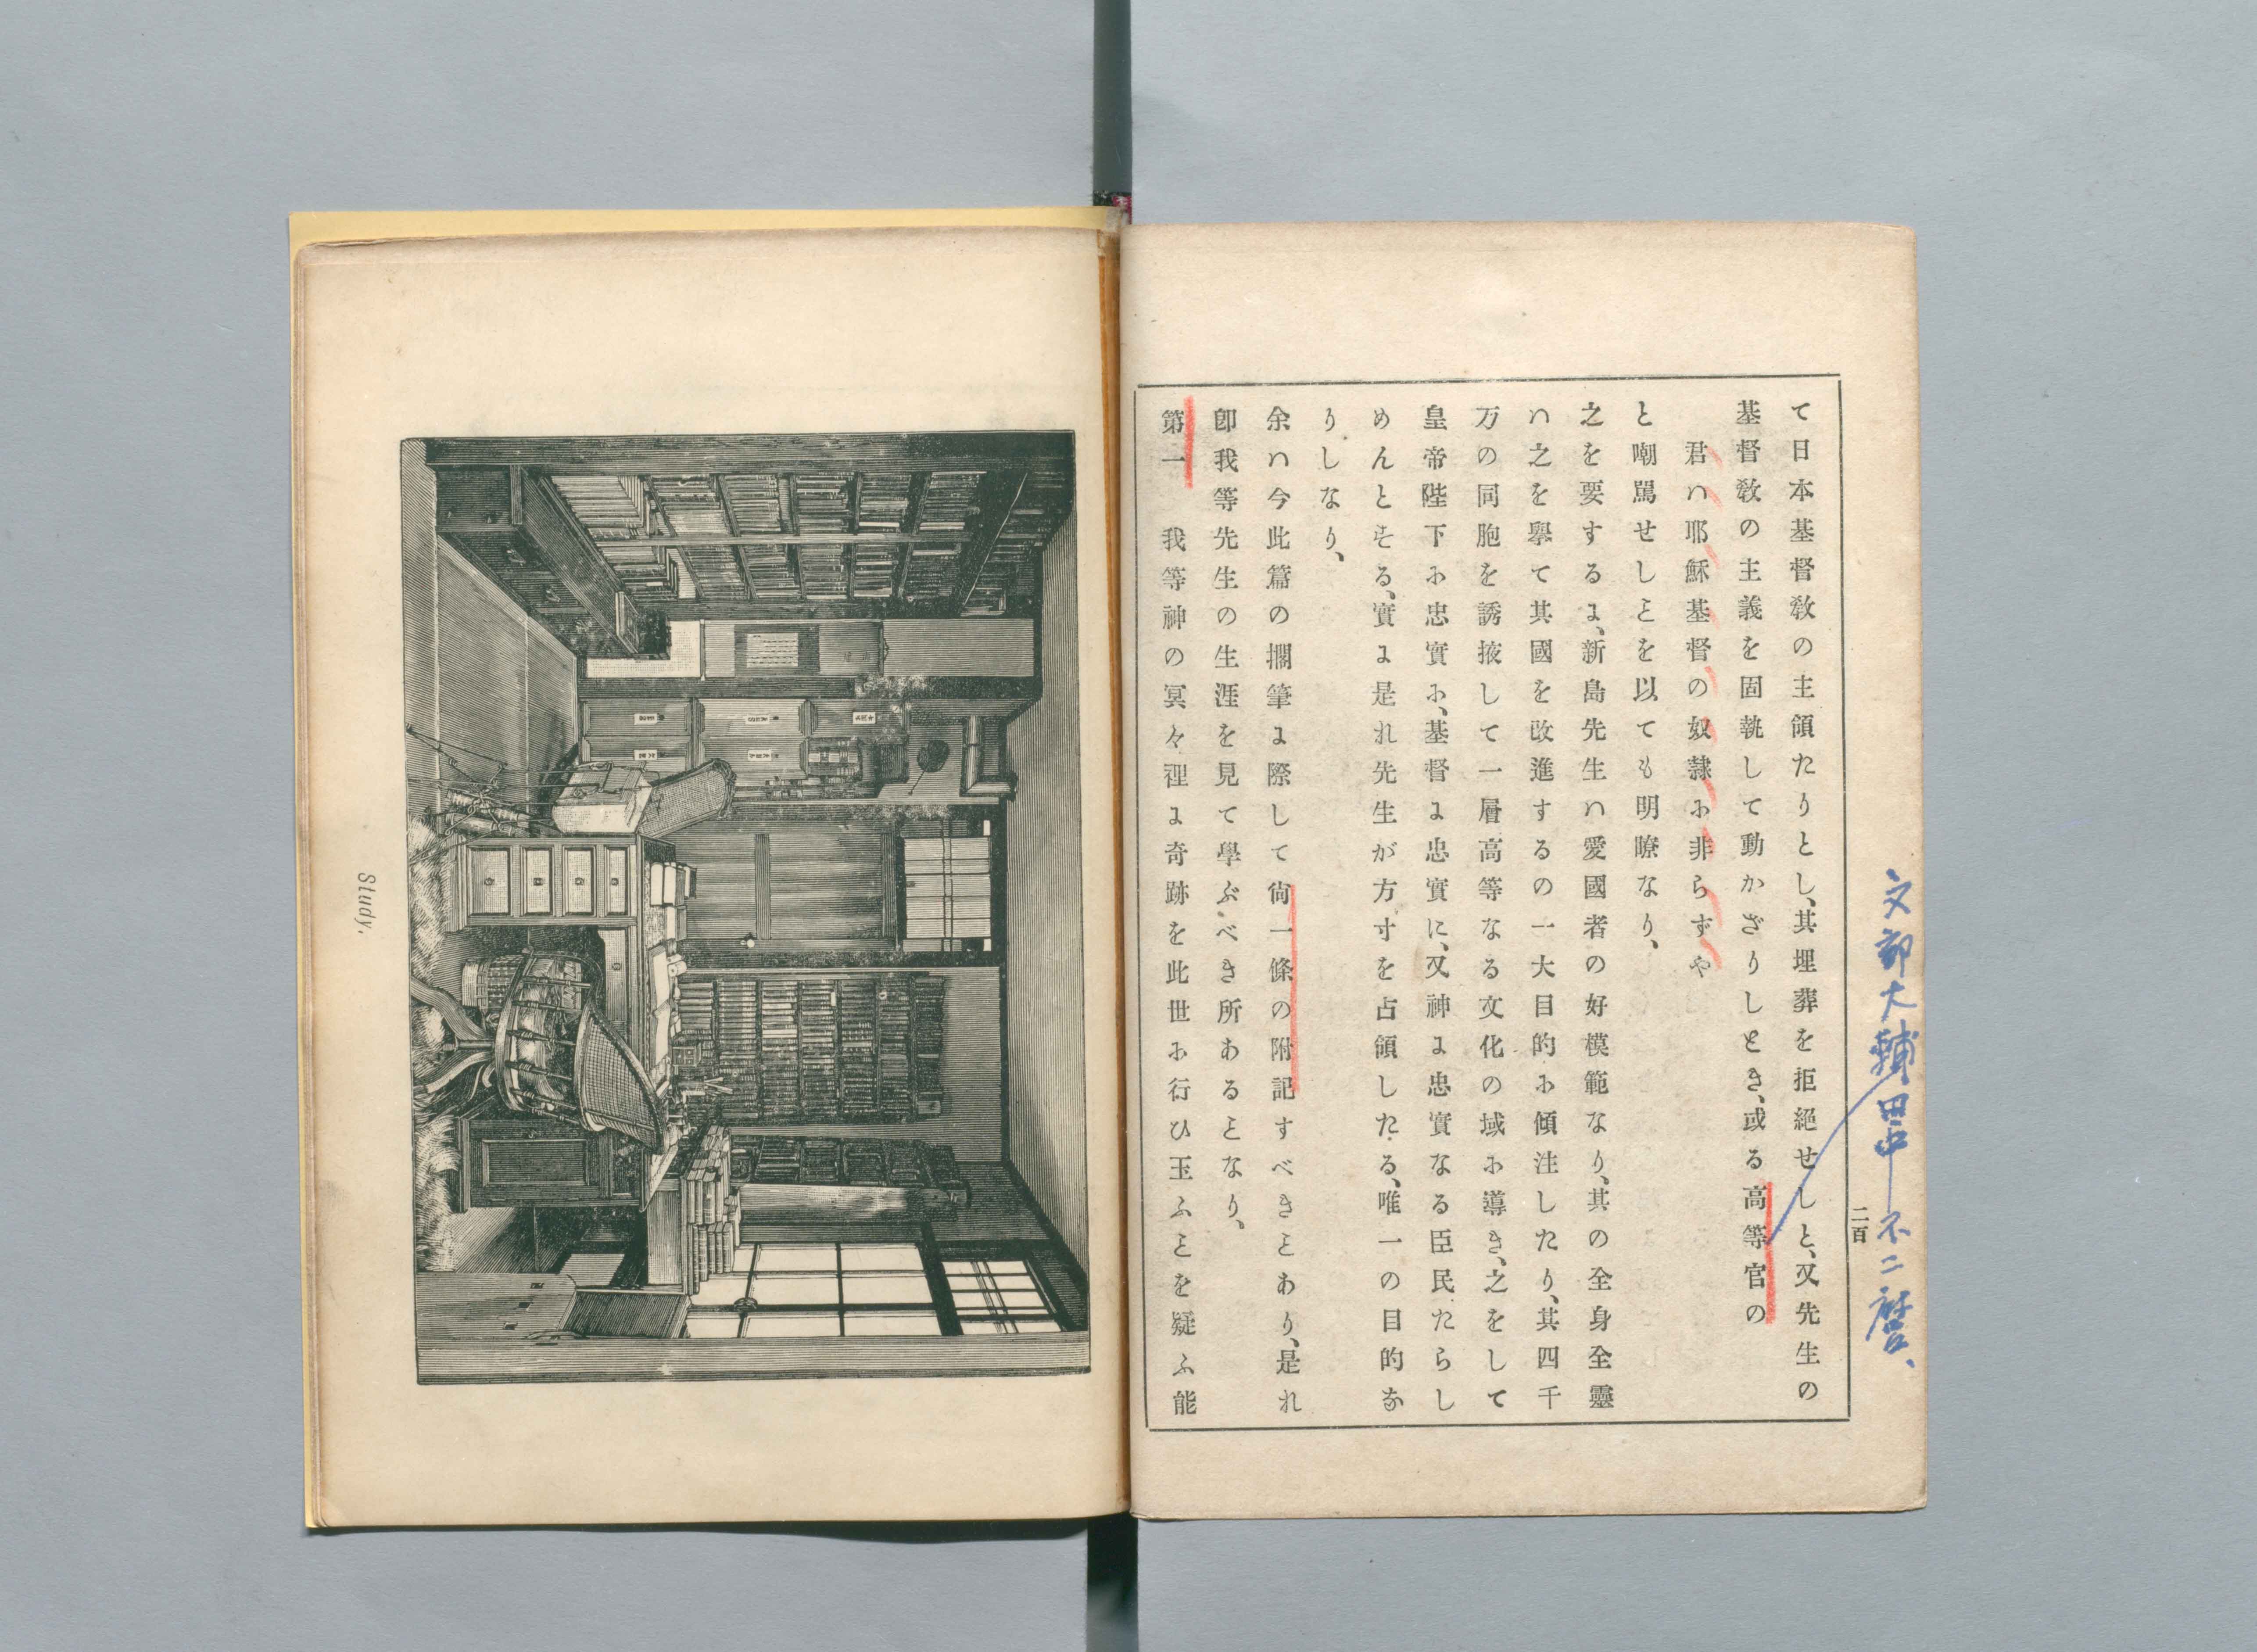 て日本基督敎の主領たりとし、其埋葬を拒絕せしと、又先生の
基督敎の主義を固執して動かざりしとき、或る高等官の
君ハ耶穌基督の奴隸に非らずや
と嘲罵せしことを以ても明瞭なり、
之を要するに、新島先生ハ愛國者の好模範なり、其の全身全靈
ハ之を擧て其國を改進するの一大目的に傾注したり、其四千
万の同胞を誘掖して一層高等なる文化の域に導き、之をして
皇帝陛下に忠實に、基督に忠實に、又神に忠實なる臣民たらし
めんとする、實に是れ先生が方寸を占領したる、唯一の目的な
りしなり、
余ハ今此篇の擱筆に際して尙一條の附記すべきことあり、是れ
卽我等先生の生涯を見て學ぶべき所あることなり、
第一　我等神の冥々裡に奇跡を此世に行ひ玉ふことを疑ふ能
二百
文部大輔田中不二麿、
Study.